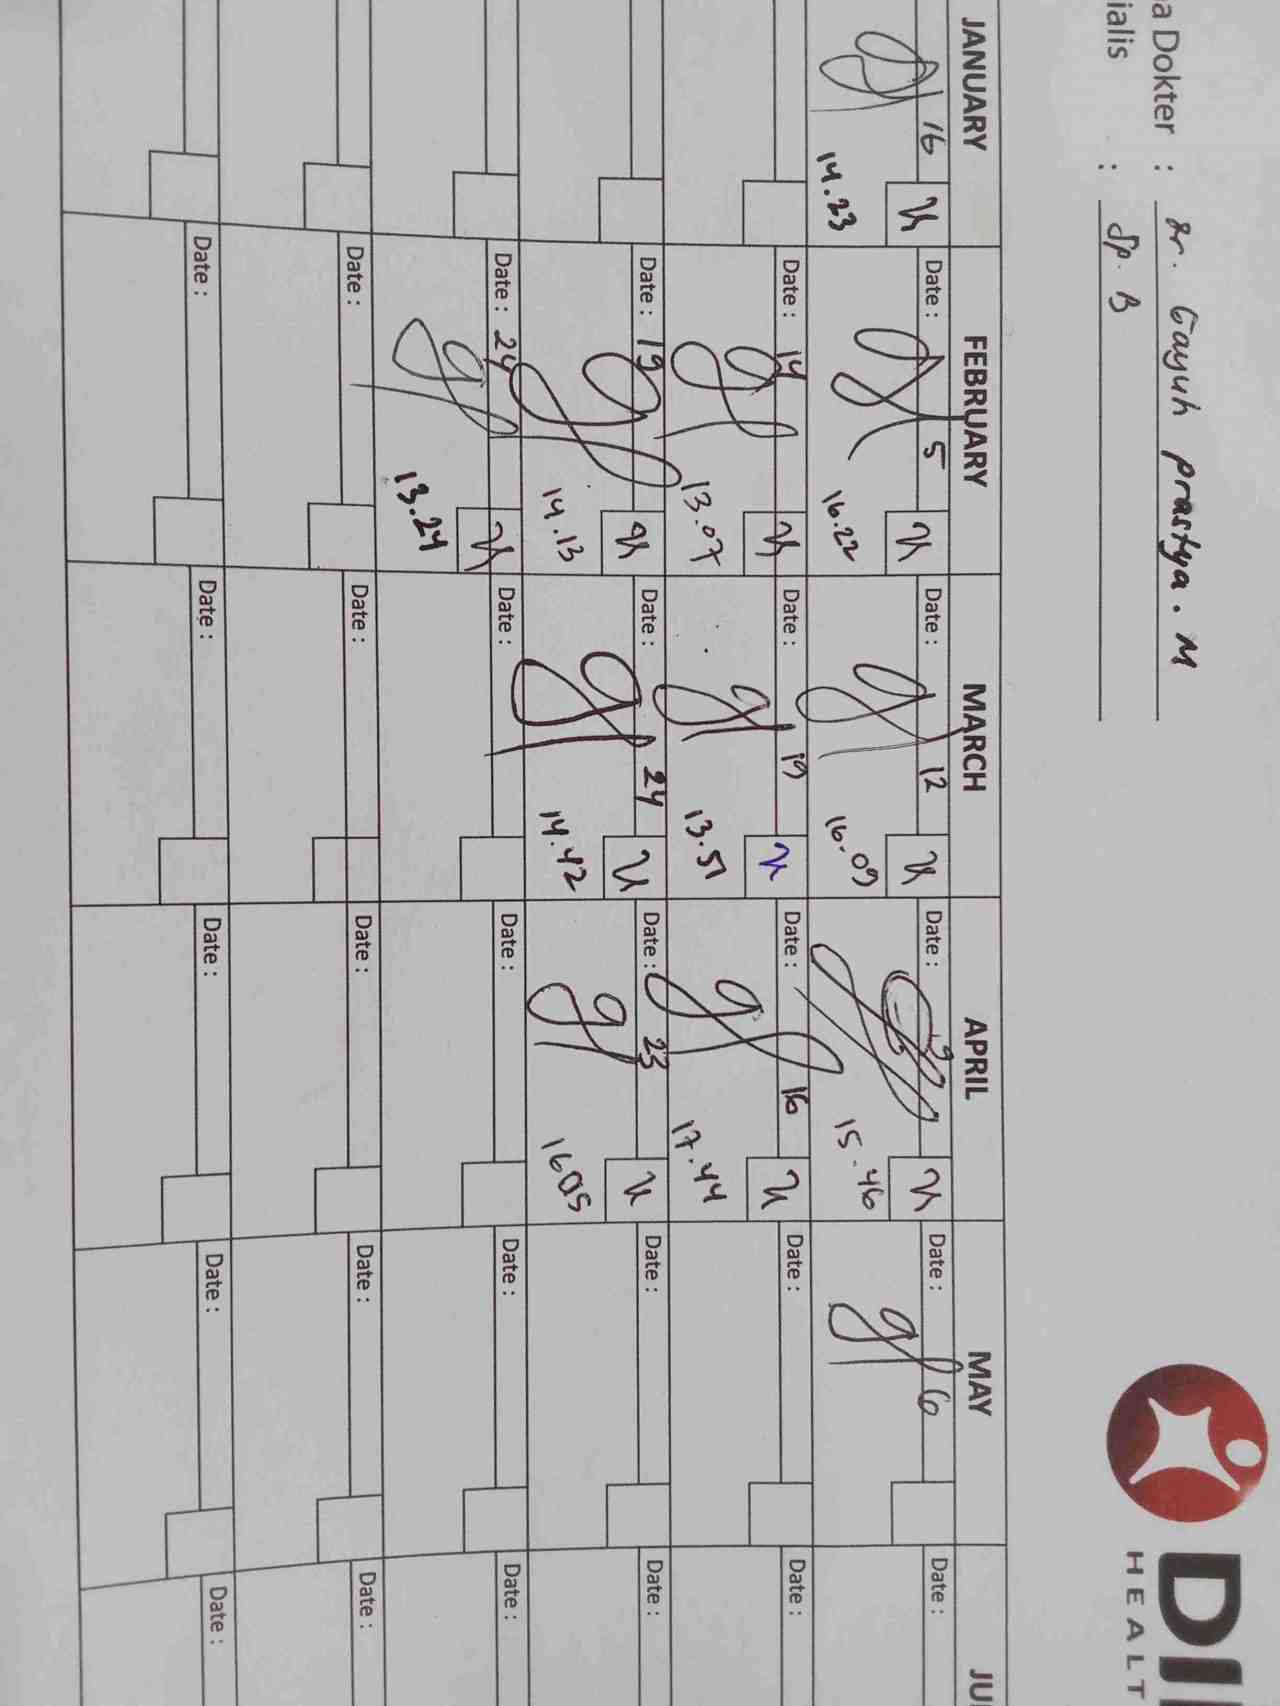 a Dokter : dr. Gayuh prastya. M
ialis : Sp. B
DI
HEALT
JANUARY FEBRUARY MARCH APRIL MAY JU
16 Date : 5 Date : 12 Date : 9 Date : 6 Date :
14.23 16.22 16.09 15.46
Date : 14 Date : 19 Date : 16 Date : Date :
13.07 13.51 17.44
Date : 19 Date : 24 Date : 23 Date : Date :
14.13 14.42 1605
Date : 24 Date : Date : Date : Date :
13.24
Date : Date : Date : Date : Date :
Date : Date : Date : Date : Date :